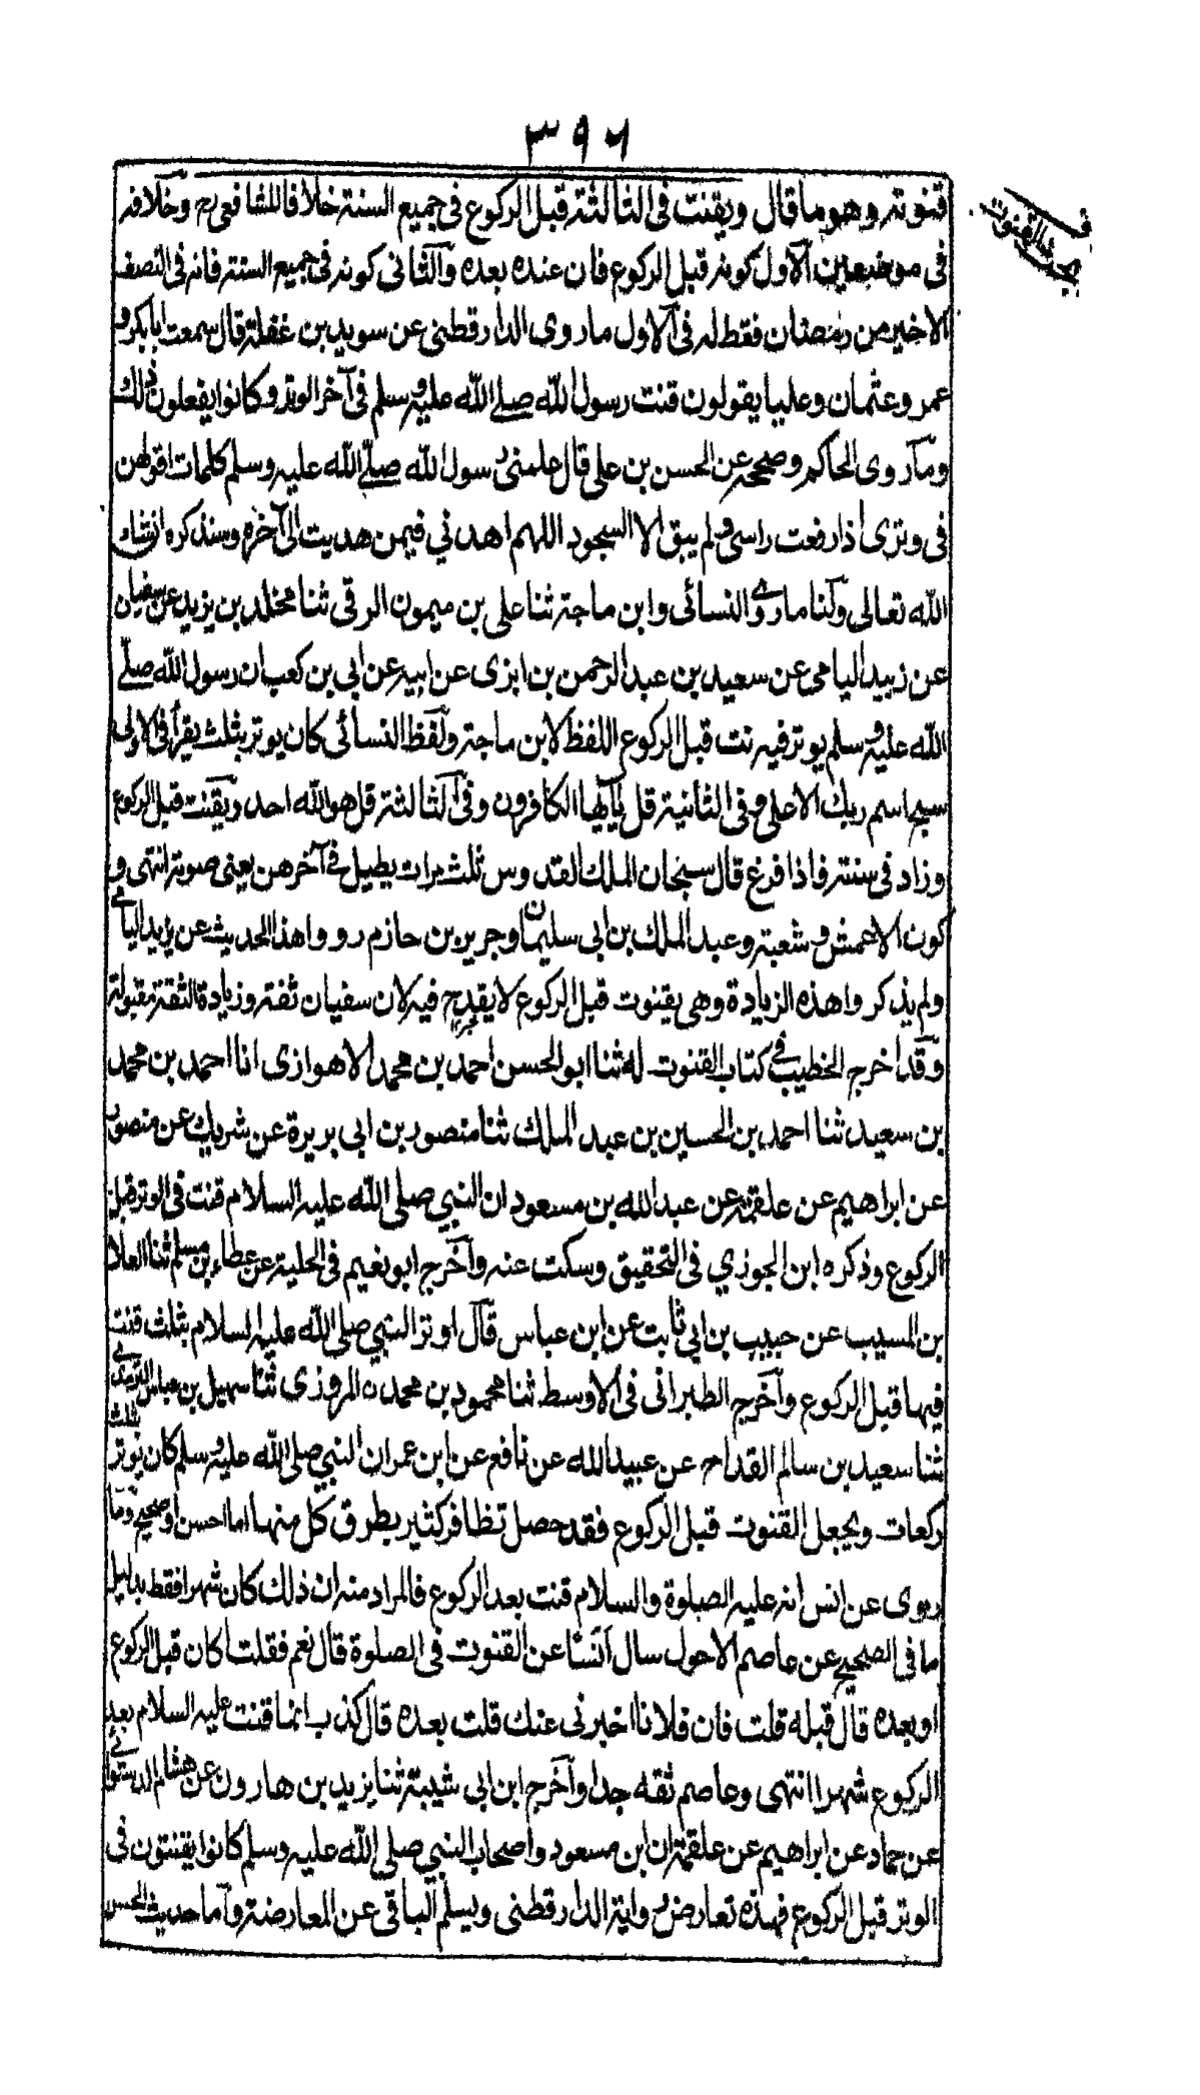 ٣٩٦
قنوته وهو ما قال ويقنت فى الثالثة قبل الركوع فى جميع السنة خلافا للشافعى رح وخلافه
فى موضعين الاول كونه قبل الركوع فان عنده بعده والثانى كونه فى جميع السنة فانه فى النصف
الاخير من رمضان فقط له فى الاول ما روى الدارقطنى عن سويد بن غفلة قال سمعت ابا بكر و
عمر وعثمان وعليا يقولون قنت رسول الله صلے الله عليه وسلم فى آخر الوتر وكانوا يفعلون ذلك
وما روى الحاكم وصححه عن الحسن بن على قال علمنى رسول الله صلے الله عليه وسلم كلمات اقولهن
فى وترى اذا رفعت راسى ولم يبق الا السجود اللهم اهدني فيمن هديت الى آخره وسنذكره انشاء
الله تعالى ولنا ما روے النسائى وابن ماجة ثنا على بن ميمون الرقى ثنا مخلد بن يزيد عن سفيان
عن زبيد اليامى عن سعيد بن عبد الرحمن بن ابزى عن ابيه عن ابى بن كعب ان رسول الله صلے
الله عليه وسلم يوتر فيقنت قبل الركوع اللفظ لابن ماجة ولفظ النسائى كان يوتر بثلث يقرأ فى الاولى
سبح اسم ربك الاعلى وفى الثانية قل يآيها الكافرون وفى الثالثة قل هو الله احد ويقنت قبل الركوع
وزاد فى سننه فاذا فرغ قال سبحان الملك القدوس ثلث مرات يطيل فے آخرهن يعنى صوته انتهى و
كون الاعمش و شعبة وعبد الملك بن ابى سليمان وجرير بن حازم رووا هذا الحديث عن زبيد اليامے
ولم يذكروا هذه الزيادة وهى يقنوت قبل الركوع لا يقدح فيه لان سفيان ثقة وزيادة الثقة مقبولة
وقد اخرج الخطيب فے كتاب القنوت له ثنا ابو الحسن احمد بن محمد الاهوازى انا احمد بن محمد
بن سعيد ثنا احمد بن الحسين بن عبد الملك ثنا منصور بن ابى بريرة عن شريك عن منصور
عن ابراهيم عن علقمة عن عبد الله بن مسعود ان النبي صلى الله عليه السلام قنت فى الوتر قبل
الركوع وذكره ابن الجوزي فى التحقيق وسكت عنه وآخرج ابو نعيم فى الحلية عن عطاء بن مسلم ثنا العلا
بن المسيب عن حبيب بن ابي ثابت عن ابن عباس قال اوتر النبي صلى الله عليه السلام بثلث قنت
فيها قبل الركوع وآخرج الطبرانى فى الاوسط ثنا محمود بن محمد المروزى ثنا سهيل بن عباس الترمذے
ثنا سعيد بن سالم القداح عن عبيد الله عن نافع عن ابن عمر ان النبي صلى الله عليه وسلم كان يوتر بثلث
ركعات ويجعل القنوت قبل الركوع فقد حصل تظافر كثير بطرق كل منها اما احسن او صحيح وما
روى عن انس انه عليه الصلوة والسلام قنت بعد الركوع فالمراد منه ان ذلك كان شهرا فقط بدليل
ما فى الصحيح عن عاصم الاحول سال انسا عن القنوت فى الصلوة قال نعم فقلت اكان قبل الركوع
او بعده قال قبله قلت فان فلانا اخبرنى عنك قلت بعده قال كذب انما قنت عليه السلام بعد
الركوع شهرا انتهى وعاصم ثقه جدا وآخرج ابن ابى شيبة ثنا يزيد بن هارون عن هشام الدستوائے
عن حماد عن ابراهيم عن علقمة ان ابن مسعود واصحاب النبي صلى الله عليه وسلم كانوا يقنتون فى
الوتر قبل الركوع فهذه تعارض رواية الدارقطنى ويسلم الباقى عن المعارضة وآما حديث الحسن